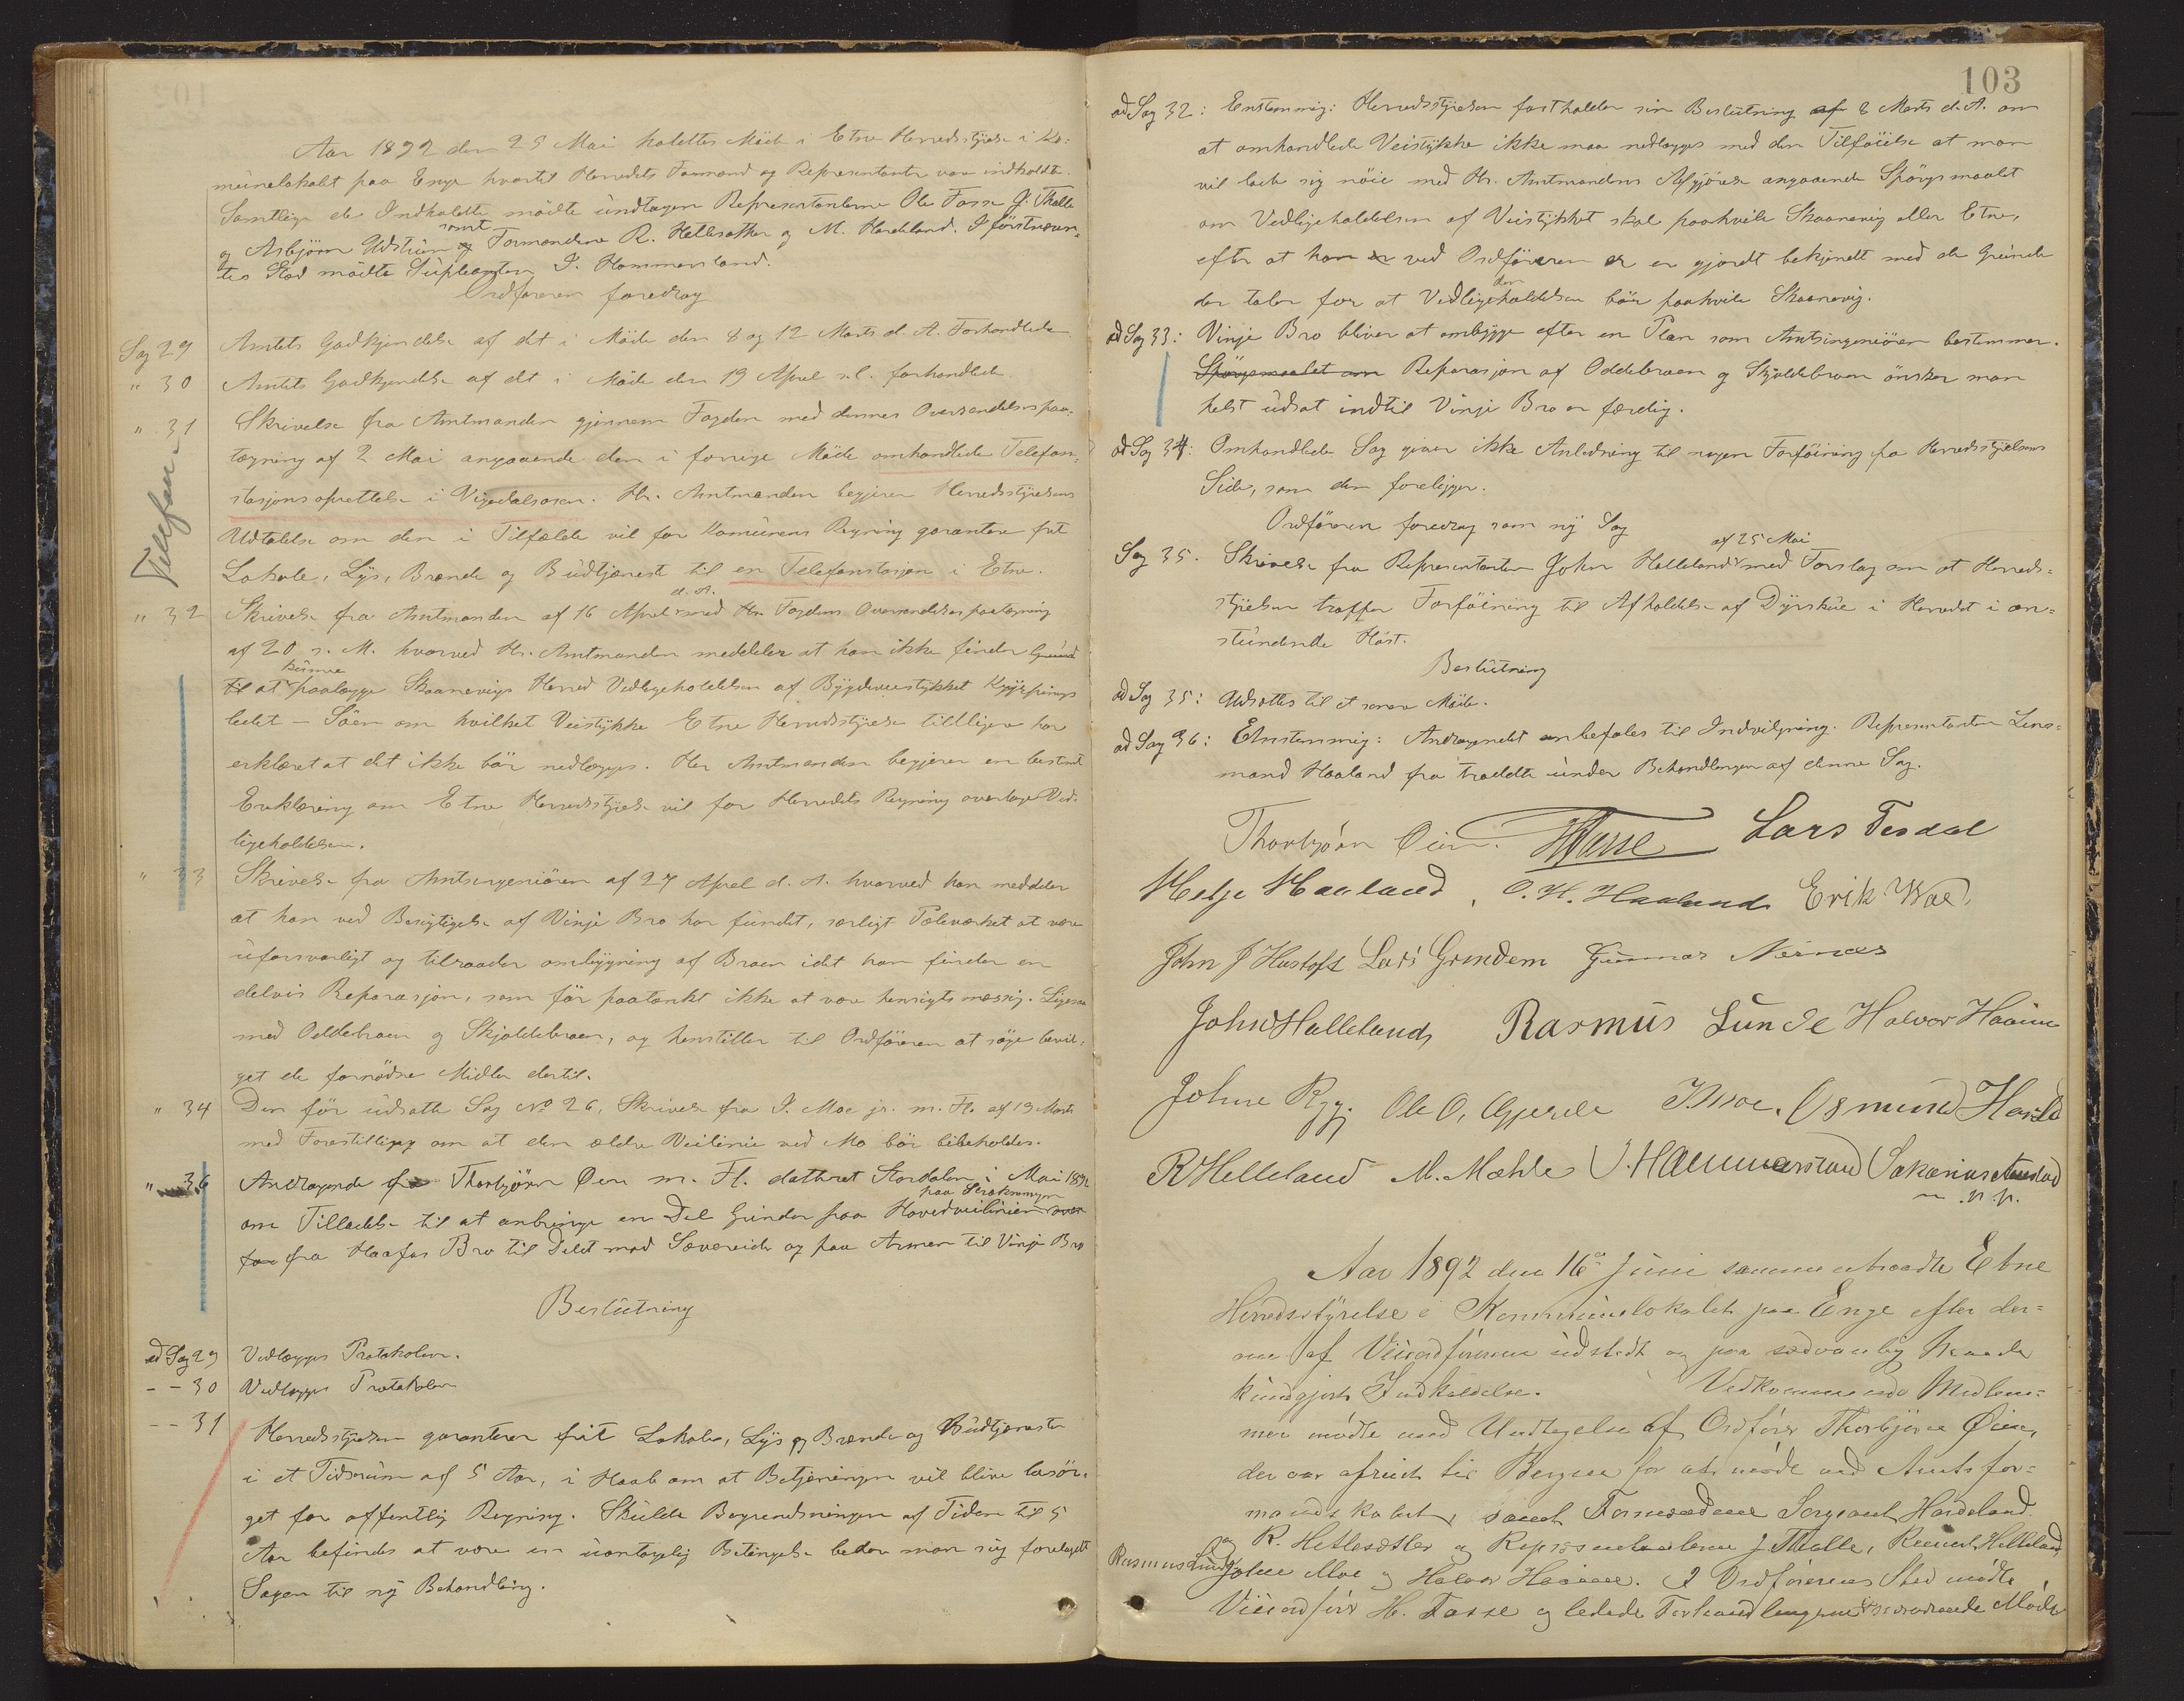 Aar 1892 den 25 Mai holdttes Möde i Etne Herredsstyrelse i Ko:
munelokalet paa Enge hvortil Herredets Formænd og Representanter var indkaldte.
Samtlige de Indkaldte mödte undtagen Representanterne Ole Fosse J. Tholle
og Asbjörn Udstrüm og samt Formændene R. Hetlesæther og M. Hardeland. I förstnævn-
tes Sted mödte Supleanten J. Hammersland.
Ordföreren foredrog
Sag 29 Amtets Godkjendelse af det i Möde den 8 og 12 Marts d. A. Forhandlede
" 30 Amtets Godkjendelse af det i Möde den 19 April s.l. forhandlede
" 31 Skrivelse fra Amtmanden gjennem Fogden med dennes Oversendelsespaa-
tegning af 2 Mai angaaende den i forrige Möde omhandlede Telefon-
stasjons oprettelse i Vigedalsosen. Hr. Amtmanden begjærer Herredsstyrelsens
Udtalelse om den i Tilfælde vil for Komunens Regning garantere frit
Lokale, Lys, Brænde og Budtjeneste til en Telefonstasjon i Etne.
Telefon.
" 32 Skrivelse fra Amtmanden af 16 April d. A. med Hr. Fogdens Oversendelsespaategning
af 20 s. M. hvorved Hr. Amtmanden meddeler at han ikke finder Grund
til at kunne paalægge Skaanevigs Herred Vedligeholdelsen af Bygdeveistykket Kyrpings
ledet – Söen om hvilket Veistykke Etne Herredsstyrelse tidligere har
erklæret at det ikke bör nedlægges. Her Amtmanden begjærer en bestemt
Erklæring om Etne Herredsstyrelse vil for Herredets Regning overtage Ved-
ligeholdelsen.
" 33 Skrivelse fra Amtsingeniören af 27 April d. A. hvorved han meddeler
at han ved Besigtigelse af Vinje Bro har fundet, særligt Pæleværket at være
uforsvarligt og tilraader ombygning af Broen idet han finder en
delvis Reparasjon, som för paatænkt ikke at være hensigtsmæssig. Ligesaa
med Oddebroen og Skjoldebroen, og henstiller til Ordföreren at söge bevil-
get de fornödne Midler dertil.
" 34 Den för udsatte Sag No 26, Skrivelse fra J. Moe jr. m. Fl. af 19 Marts
med Forestilling om at den ældre Veilinie ved Mo bör bibeholdes.
" 36 Andragende fra Thorbjörn Öien m. Fl. datteret Stordalen i Mai 1892
om Tilladelse til at anbringe en Del Grinder paa Hovedveilinien
fra Haafos Bro til Delet mod Sævereide og paa Armen til Vinje Bro
Beslutning
ad Sag 29 Vedlægges Protokolen.
- - 30 Vedlægges Protokolen
- - 31 Herredsstyrelsen garanterer frit Lokale, Lys og Brænde og Budtjeneste
i et Tidsrum af 5 Aar, i Haab om at Betjeningen vil blive besör-
get for offentlig Regning. Skulde Begrændsningen af Tiden til 5
Aar befindes at være en uantagelig Betingelse beder man sig forelagt
Sagen til ny Behandling.
103
ad Sag 32: Enstemmig: Herredsstyrelsen fastholder sin Beslutning af 8 Marts d. A. om
at omhandlede Veistykke ikke maa nedlægges med den Tilföielse at man
vil lade sig nöie med Hr. Amtmandens Afgjörelse angaaende Spörgsmaalet
om Vedligeholdelsen af Veistykket skal paahvile Skaanevig eller Etne,
efter at han ved Ordföreren er gjordt bekjendt med de Grunde
der taler for at Vedligeholdelsen bör paahvile Skaanevig.
ad Sag 33: Vinje Bro bliver at ombygge efter en Plan som Amtsingeniören bestemmer.
Spörgsmaalet om Reparasjon af Oddebroen og Skjoldebroen önsker man
helst udsat indtil Vinje Bro er færdig.
ad Sag 34: Omhandlede Sag giver ikke Anledning til nogen Forföining fra Herredsstyrelsens
Side, som den foreligger.
Ordföreren foredrog som ny Sag
Sag 35. Skrivelse fra Representanten John Helleland af 25 Mai med Forslag om at Herreds-
styrelsen træffer Forföining til Afholdelse af Dyrskue i Herredet i an-
stundende Höst.
Beslutning
ad Sag 35: Udsættes til et senere Möde.
ad Sag 36: Enstemmig: Andragendet anbefales til Indvilgning. Representanten Lens-
mand Haaland fratraadte under Behandlingen af denne Sag.
Thorbjörn Öien. HFosse Lars Tesdal
Helje Haaland, O. H. Haaland Erik Moe,
John J Hustoft Lars Grindem Gunnar Nernæs
John Helleland Rasmus Lunde Halvor Haaim
Johne Rygg. Ole O. Gjerde J. Moe. Osmund Haaland
R Helleland M. Mæhle J. Hammersland Sakarias Aarstad
m. p. p.
Aar 1892 den 16de Juni sammentraadte Etne
Herredsstyrelse i Kommunelokalet paa Enge efter der-
om af Viceordföreren udstedt og paa sædvanlig Maade
kundgjort Indkaldelse. Vedkommende Medlem-
mer mödte med Undtagelse af Ordförer Thorbjörn Öien,
der var afreist til Bergen for at möde ved Amtsfor-
mandskabet, samt Formændene Sergeant Hardeland
og R. Hetlesæther og Repræsentanterne J. Tholle, Reinert Helleland,
Rasmus Lunde Johne Moe og Halvor Haaim. I Ordförerens Sted mödte
Viceordförer H. Fosse og ledede Forhandlingerne Möde